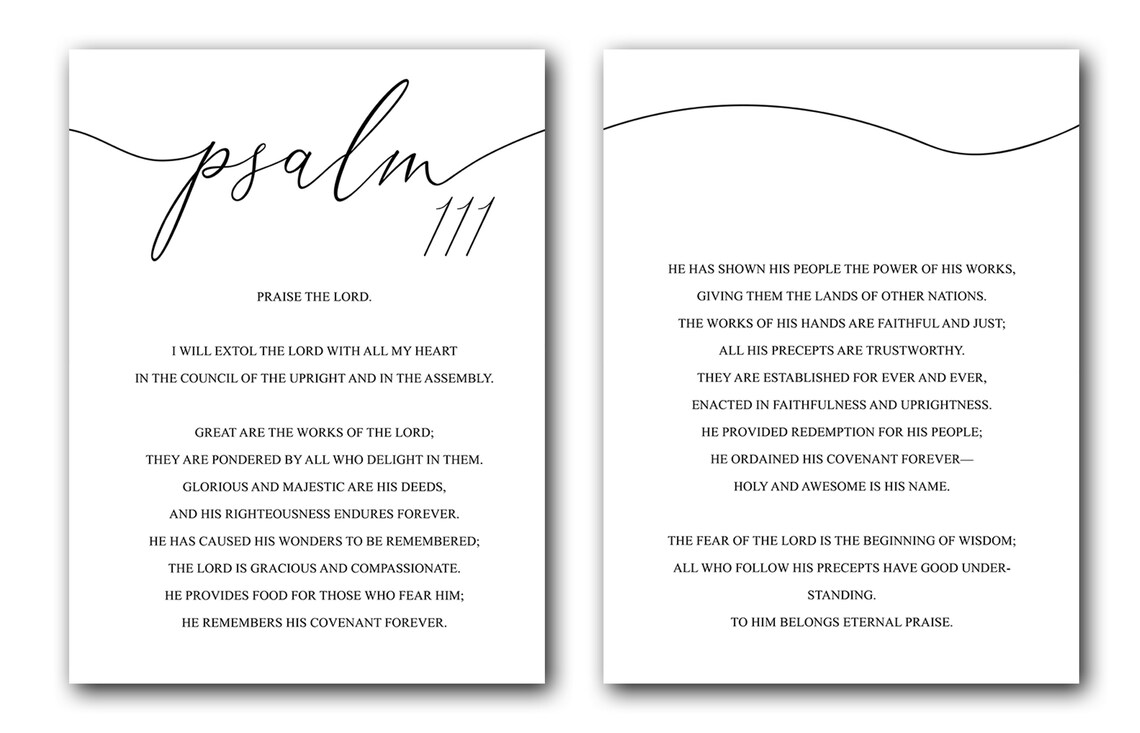 psalm
111
PRAISE THE LORD.
I WILL EXTOL THE LORD WITH ALL MY HEART
IN THE COUNCIL OF THE UPRIGHT AND IN THE ASSEMBLY.
GREAT ARE THE WORKS OF THE LORD;
THEY ARE PONDERED BY ALL WHO DELIGHT IN THEM.
GLORIOUS AND MAJESTIC ARE HIS DEEDS,
AND HIS RIGHTEOUSNESS ENDURES FOREVER.
HE HAS CAUSED HIS WONDERS TO BE REMEMBERED;
THE LORD IS GRACIOUS AND COMPASSIONATE.
HE PROVIDES FOOD FOR THOSE WHO FEAR HIM;
HE REMEMBERS HIS COVENANT FOREVER.
HE HAS SHOWN HIS PEOPLE THE POWER OF HIS WORKS,
GIVING THEM THE LANDS OF OTHER NATIONS.
THE WORKS OF HIS HANDS ARE FAITHFUL AND JUST;
ALL HIS PRECEPTS ARE TRUSTWORTHY.
THEY ARE ESTABLISHED FOR EVER AND EVER,
ENACTED IN FAITHFULNESS AND UPRIGHTNESS.
HE PROVIDED REDEMPTION FOR HIS PEOPLE;
HE ORDAINED HIS COVENANT FOREVER—
HOLY AND AWESOME IS HIS NAME.
THE FEAR OF THE LORD IS THE BEGINNING OF WISDOM;
ALL WHO FOLLOW HIS PRECEPTS HAVE GOOD UNDER-
STANDING.
TO HIM BELONGS ETERNAL PRAISE.